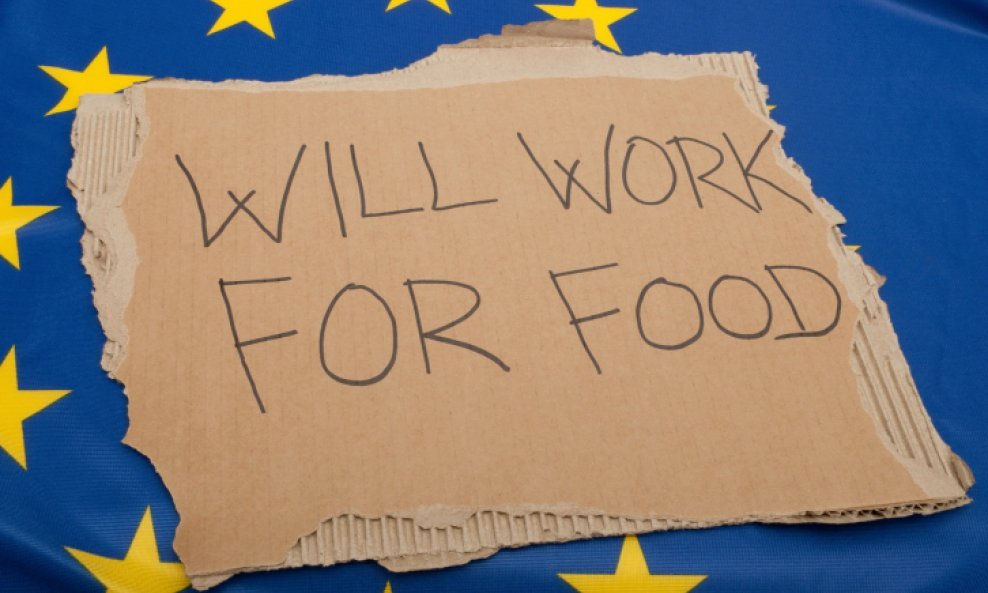 WILL WORK
FOR FOOD